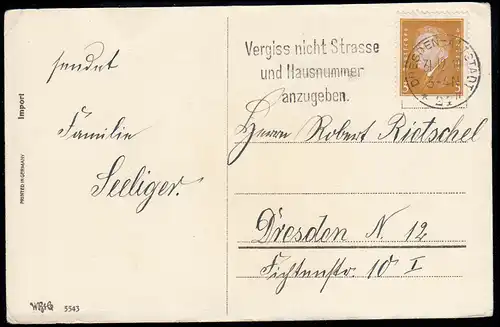 sendet
Familie
Seeliger.
Import
PRINTED IN GERMANY
5543
Vergiss nicht Strasse
und Hausnummer
anzugeben.
Herrn Robert Rietschel
Dresden N. 12
Fichtenstr. 10 I